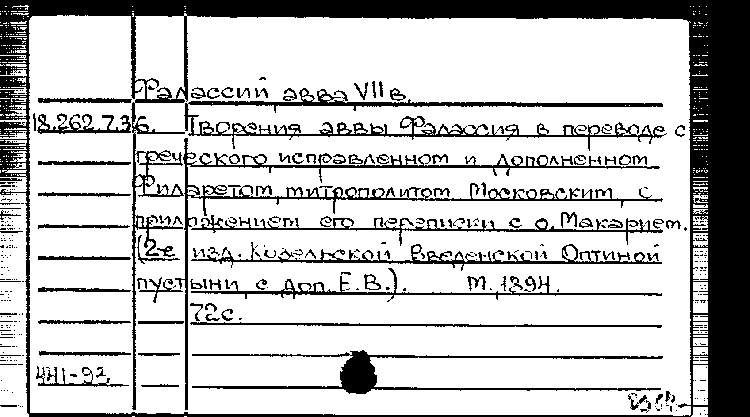 Фалассий, авва, VII в.
18.262.7.36. Творения аввы Фалассия в переводе с
греческого, исправленном и дополненном
Филаретом, митрополитом Московским, с
приложением его переписки с о. Макарием.
(2-е изд. Козельской Введенской Оптиной
пустыни, с доп. Е.В.). М., 1894.
72 с.
441-93